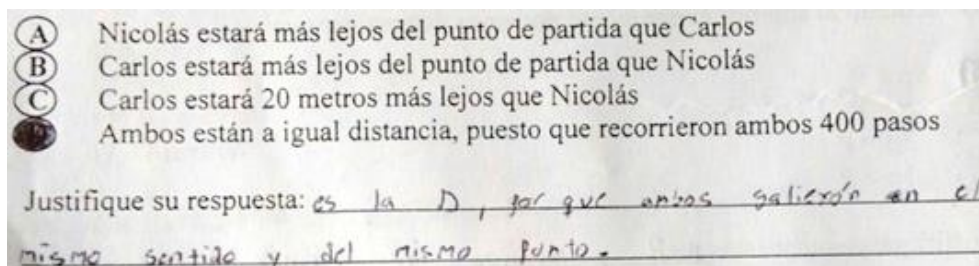 A Nicolás estará más lejos del punto de partida que Carlos
B Carlos estará más lejos del punto de partida que Nicolás
C Carlos estará 20 metros más lejos que Nicolás
Ambos están a igual distancia, puesto que recorrieron ambos 400 pasos
Justifique su respuesta: es la D, por que ambos salierón en e
mismo sentido y del mismo punto.